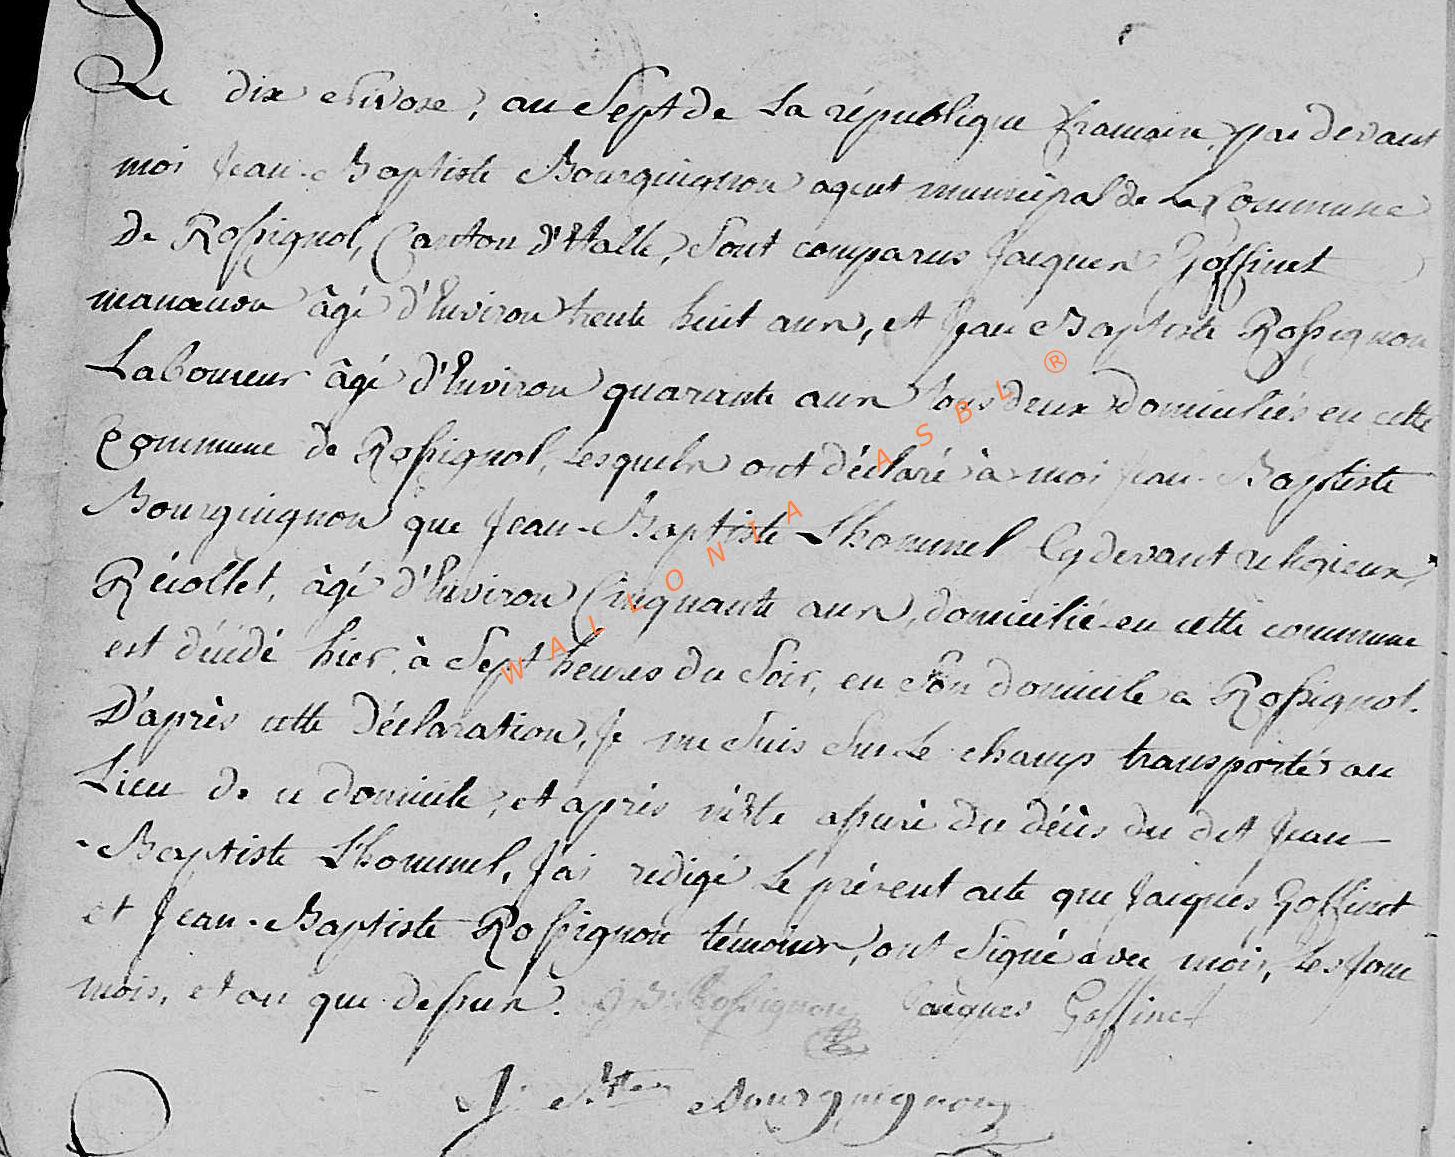 Le dix Nivose, an Sept de la république francaise, par devant
moi Jean-Baptiste Bourguignon agent municipal de la Commune
de Rossignol, Canton d'Etalle, Sont comparus Jacques Goffinet
manœuvre âgé d'Environ trente huit ans, et Jean Baptiste Rossignon
Laboureur âgé d'Environ quarante ans tous deux domiciliés en cette
Commune de Rossignol, Lesquels ont déclaré à moi Jean-Baptiste
Bourguignon que Jean-Baptiste Lhommel Cydevant religieux
Récollet, âgé d'Environ Cinquante ans, domicilié en cette commune
est décédé hier, à Sept heures du Soir, en Son domicile a Rossignol.
D'après cette Déclaration, Je me Suis Sur Le champ transporté au
Lieu de ce domicile, et après m'être assuré du décès du dit Jean-
-Baptiste Lhommel, J'ai redigé Le présent acte que Jacques Goffinet
et Jean-Baptiste Rossignon témoins, ont Signé avec moi, Les Jour
mois, et an que dessus. J B Rossignon Jacques Goffinet
J. Bte Bourguignon
WALLONIA ASBL ®